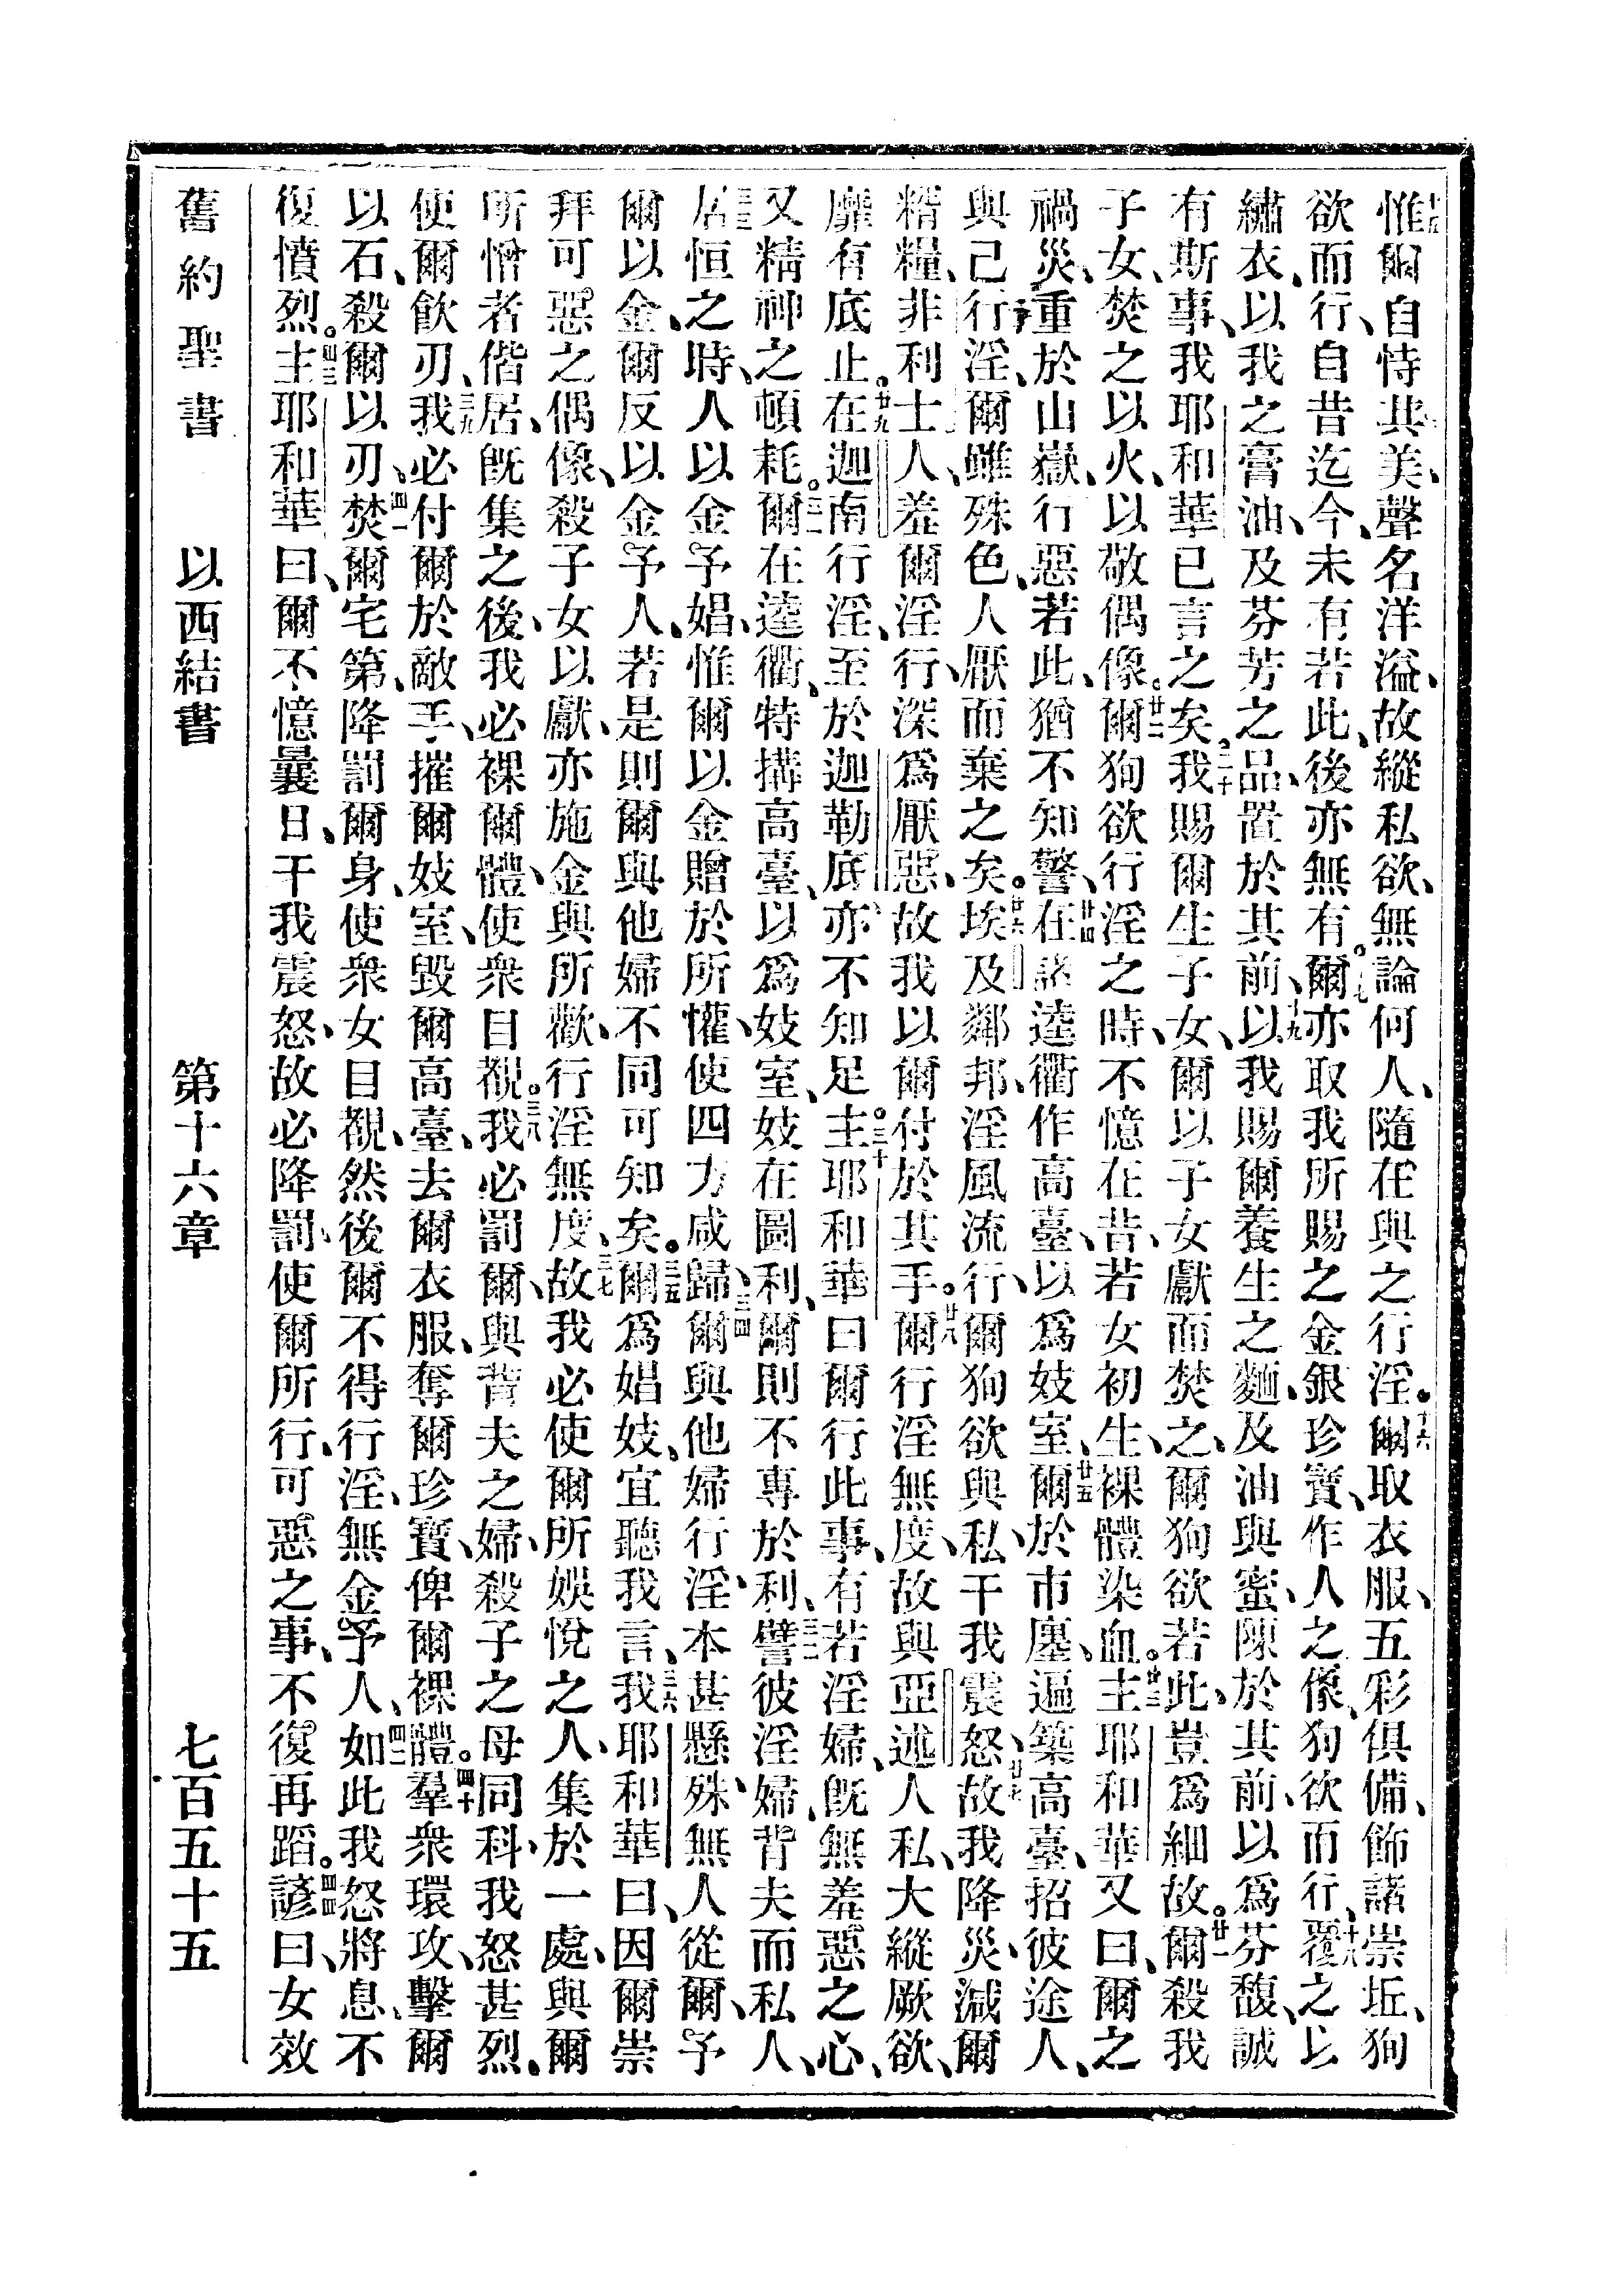 十五惟爾自恃其美、聲名洋溢、故縱私欲、無論何人、隨在與之行淫。十六爾取衣服、五彩俱備、飾諸崇坵、狥
欲而行、自昔迄今、未有若此、後亦無有。十七爾亦取我所賜之金銀珍寶、作人之像、狥欲而行、十八覆之以
繡衣、以我之膏油、及芬芳之品、置於其前、十九以我賜爾養生之麵、及油與蜜、陳於其前、以爲芬馥、誠
有斯事、我耶和華已言之矣。二十我賜爾生子女、爾以子女獻而焚之、爾狥欲若此、豈爲細故。廿一爾殺我
子女、焚之以火、以敬偶像。廿二爾狥欲行淫之時、不憶在昔、若女初生、裸體染血。廿三主耶和華又曰、爾之
禍災、重於山嶽、行惡若此、猶不知警、廿四在諸逵衢作高臺、以爲妓室、廿五爾於市廛、遍築高臺、招彼途人、
與己行淫、爾雖殊色、人厭而棄之矣。廿六埃及鄰邦、淫風流行、爾狥欲與私、干我震怒、廿七故我降災、減爾
糈糧、非利士人、羞爾淫行、深爲厭惡、故我以爾付於其手。廿八爾行淫無度、故與亞述人私、大縱厥欲、
靡有底止。廿九在迦南行淫、至於迦勒底、亦不知足。三十主耶和華曰、爾行此事、有若淫婦、旣無羞惡之心、
又精神之頓耗。三一爾在逵衢、特搆高臺、以爲妓室、妓在圖利、爾則不專於利、三二譬彼淫婦、背夫而私人、
三三居恒之時、人以金予娼、惟爾以金贈於所懽、使四方咸歸、三四爾與他婦行淫、本甚懸殊、無人從爾、予
爾以金、爾反以金予人、若是則爾與他婦不同可知矣。三五爾爲娼妓、宜聽我言、三六我耶和華曰、因爾崇
拜可惡之偶像、殺子女以獻、亦施金與所歡、行淫無度、三七故我必使爾所娛悅之人、集於一處、與爾
所憎者偕居、旣集之後、我必裸爾體、使衆目覩。三八我必罰爾、與背夫之婦、殺子之母同科、我怒甚烈、
使爾飲刃、三九我必付爾於敵手、摧爾妓室、毀爾高臺、去爾衣服、奪爾珍寶、俾爾裸體。四十羣衆環攻、擊爾
以石、殺爾以刃、四一焚爾宅第、降罰爾身、使衆女目覩、然後爾不得行淫、無金予人、四二如此我怒將息、不
復憤烈。四三主耶和華曰、爾不憶曩日、干我震怒、故必降罰、使爾所行、可惡之事、不復再蹈。四四諺曰、女效
舊約聖書 以西結書 第十六章 七百五十五